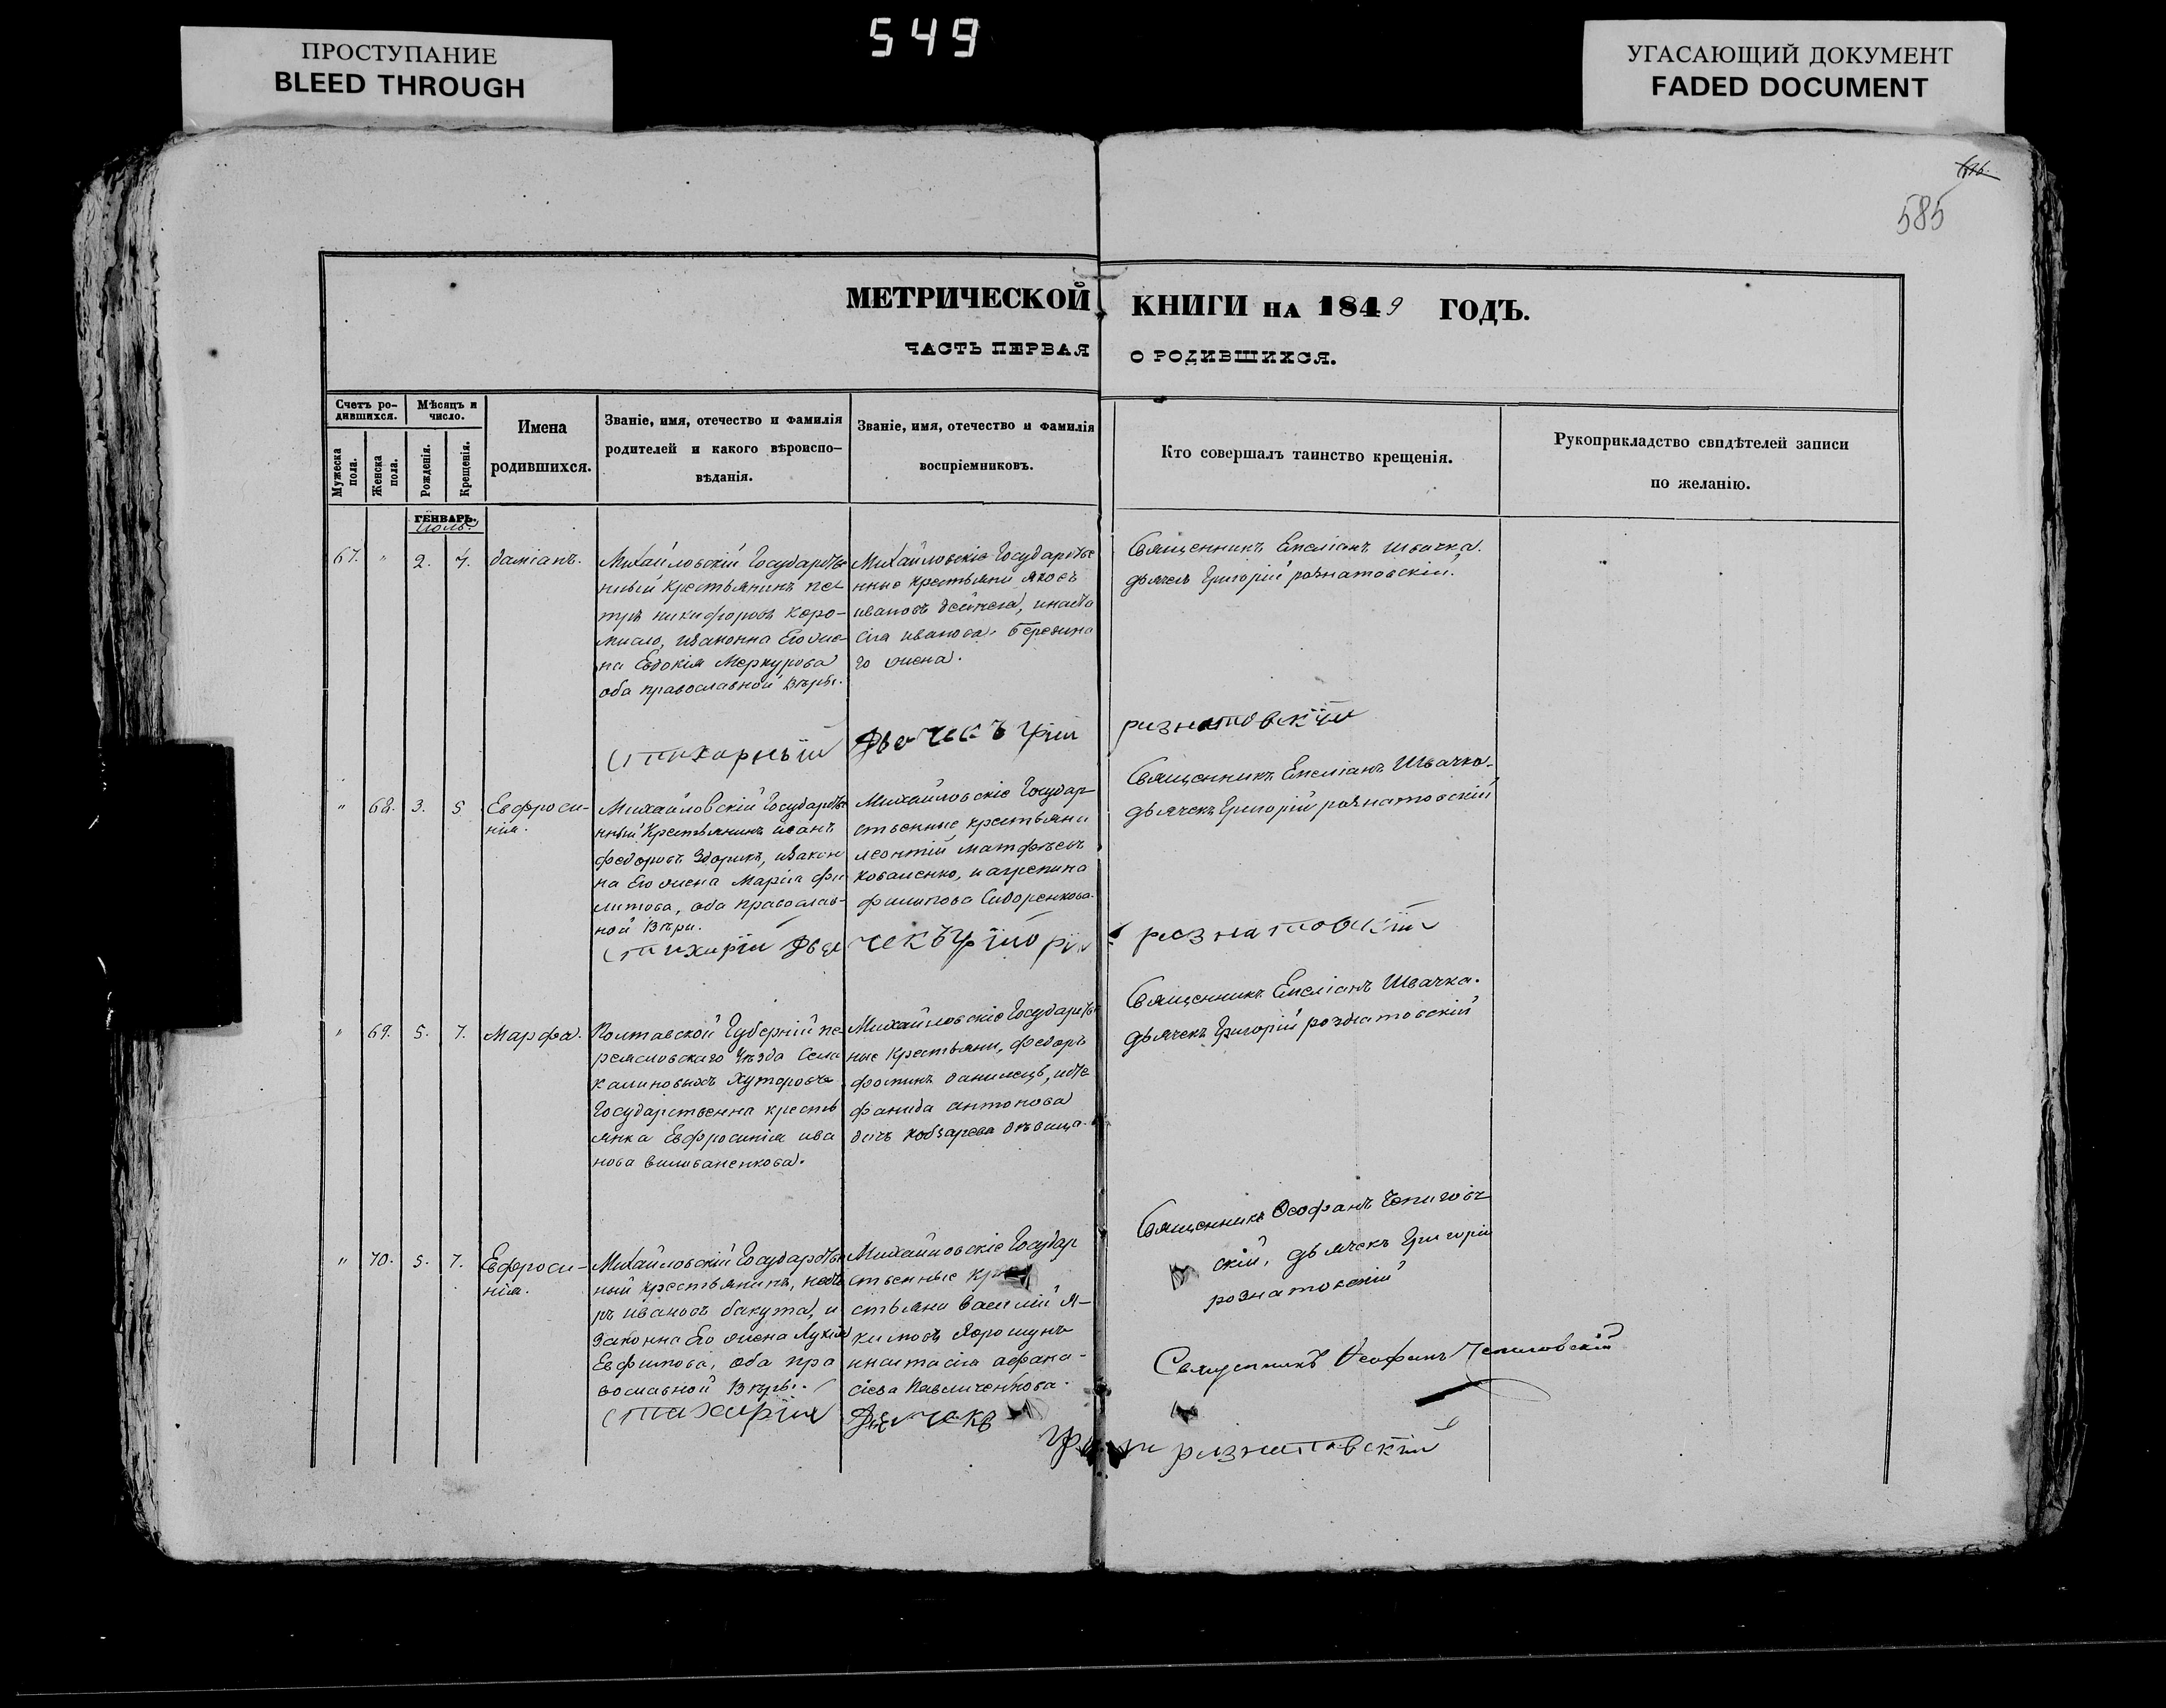 ПРОСТУПАНИЕ
BLEED THROUGH
549
УГАСАЮЩИЙ ДОКУМЕНТ
FADED DOCUMENT
585
МЕТРИЧЕСКОЙ КНИГИ НА 1849 ГОДЪ.
ЧАСТЬ ПЕРВАЯ О РОДИВШИХСЯ.
Счетъ ро-
дившихся.
Мужеска
пола.
Женска
пола.
Мѣсяцъ и
число.
Рожденія.
Крещенія.
Имена
родившихся.
Званіе, имя, отечество и фамилія
родителей и какого вѣроиспо-
вѣданія.
Званіе, имя, отечество и фамилія
воспріемниковъ.
Кто совершалъ таинство крещенія.
Рукоприкладство свидѣтелей записи
по желанію.
ГЕНВАРЬ.
Іюль
67. " 2. 4. даміанъ.
Михайловскій Государстве
нный Крестьянинъ пе
тръ никифоровъ Коро-
мисло, изаконна Его жe-
на Евдокія Меркурова
оба православной Вѣры.
Михайловскіе Государстве
нные Крестьяни Яковъ
ивановъ дейнега, инаста
сіа иванова Березина
го жена.
Священникъ Емеліанъ Швачка.
дьячекъ Григорій рознатовскій.
Стихарный Дьячекъ Григ розматовскій
" 68. 3. 5 Евфроси-
нія.
Михайловскій Государстве
нный Крестьянинъ иванъ
федоровъ Здорикъ, изакон
на Его жена Марія фи
липова, оба православ-
ной Вѣри.
Михайловскіе Государ
ственные крестьяни
леонтій матфѣевъ
Коваленко, и агрепина
филипова Сидоренкова.
Священникъ Емеліанъ Швачка.
дьячекъ Григорій рознатовскій
Стихарій Дьячекъ Григорій рознатовскій
" 69. 5. 7. Марфа.
Полтавской Губерній пе
реясловскаго Уѣзда Села
Калиновыхъ Хуторовъ
Государственна кресть
янка Евфросинія ива
нова
Михайловскіе Государстве
ные Крестьяни, федоръ
фоминъ данилецъ, исте
фанида антонова
дочь Кобзарева дѣвица.
Священникъ Емеліанъ Швачка.
дьячекъ Григорій рознатовскій
" 70. 5. 7. Евфроси-
нія.
Михайловскій Государстве
ный крестьянинъ, несте
ръ ивановъ бакута, и
законна Его жена Лукія
Евфимова, оба пра
вославной Вѣры.
Михайловскіе Государ
ственные Кре
стьяни василій я-
кимовъ Ярошунъ
инастасіа афана-
сіева Павличенкова.
Священникъ Феофанъ Чепигов
скій, дьячекъ Григорій
рознатовскій
Священникъ Феофанъ Чепиговскій
Стихарій Дьячекъ
рознатовскій